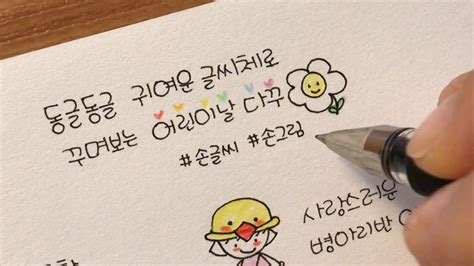 동글동글 귀여운 글씨체로
꾸며보는 어린이날 다꾸
#손글씨 #손그림
사랑스러운
병아리반